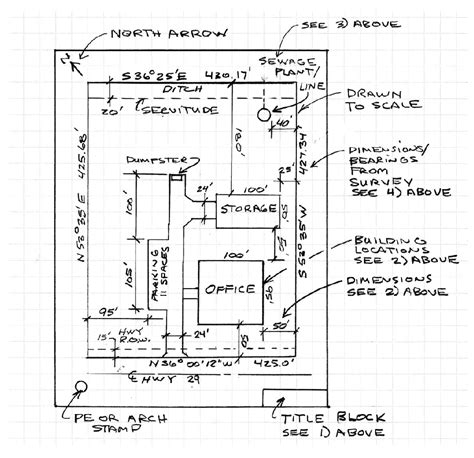 NORTH ARROW
SEE 3) ABOVE
SEWAGE
PLANT/
LINE
S 36°25'E 430.17'
DITCH
20' SERVITUDE
DRAWN
TO SCALE
40'
100'
N 53°35'E 425.68'
427.34
S 53°35'W
DIMENSIONS/
BEARINGS
FROM
SURVEY
SEE 4) ABOVE
DUMPSTER
24'
25'
100'
STORAGE
50'
100'
50'
BUILDING
LOCATIONS
SEE 2) ABOVE
105'
PARKING
11 SPACES
100'
OFFICE
95'
DIMENSIONS
SEE 2) ABOVE
95'
HWY
R.O.W.
15'
24'
50
50'
N 36°00'12"W 425.0'
HWY 29
PE OR ARCH
STAMP
TITLE BLOCK
SEE 1) ABOVE